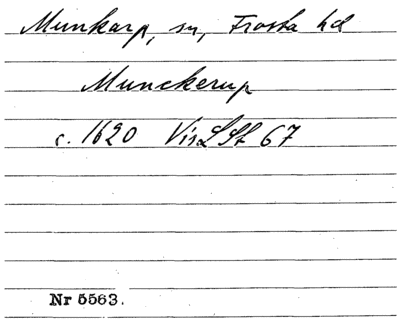 Munkarp, sn, Frosta hd
Munckerup
c. 1620 VisLSt 67
Nr 5563.